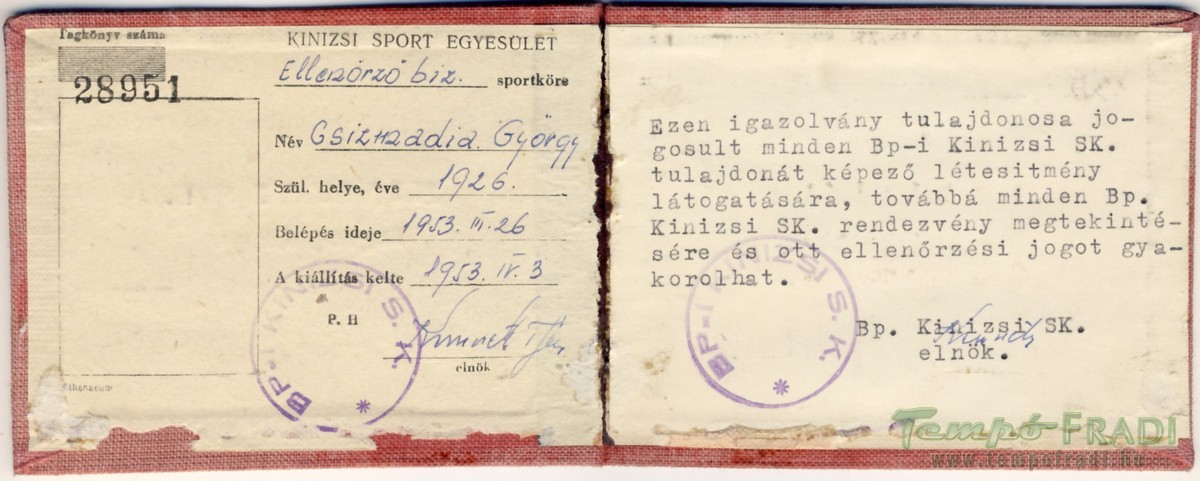 Tagkönyv száma
28951
KINIZSI SPORT EGYESÜLET
Ellenőrző biz. sportköre
Név Csizmadia György
Szül. helye, éve 1926.
Belépés ideje 1953. III. 26
A kiállítás kelte 1953. IV. 3
P. H
elnök
BP-I KINIZSI S. K. *
Athenaeum
Ezen igazolvány tulajdonosa jo-
gosult minden Bp-i Kinizsi SK.
tulajdonát képező létesitmény
látogatására, továbbá minden Bp.
Kinizsi SK. rendezvény megtekinté-
sére és ott ellenőrzési jogot gya-
korolhat.
Bp. Kinizsi SK.
elnök.
BP-I KINIZSI S. K. *
Tempó FRADI
www.tempofradi.hu